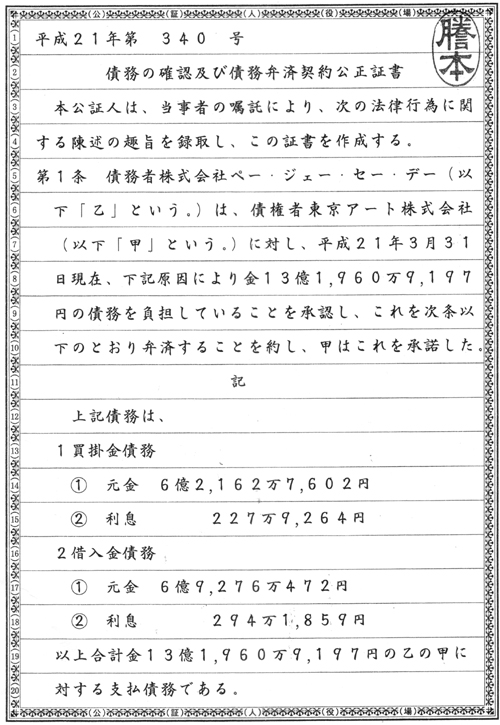 (公) (証) (人) (役) (場)
謄本
1 平成21年第 340 号
2 債務の確認及び債務弁済契約公正証書
3 本公証人は、当事者の嘱託により、次の法律行為に関
4 する陳述の趣旨を録取し、この証書を作成する。
5 第1条 債務者株式会社ペー・ジェー・セー・デー(以
6 下「乙」という。)は、債権者東京アート株式会社
7 (以下「甲」という。)に対し、平成21年3月31
8 日現在、下記原因により金13億1,960万9,197
9 円の債務を負担していることを承認し、これを次条以
10 下のとおり弁済することを約し、甲はこれを承諾した。
11 記
12 上記債務は、
13 1買掛金債務
14 ① 元金 6億2,162万7,602円
15 ② 利息 227万9,264円
16 2借入金債務
17 ① 元金 6億9,276万472円
18 ② 利息 294万1,859円
19 以上合計金13億1,960万9,197円の乙の甲に
20 対する支払債務である。
(公) (証) (人) (役) (場)